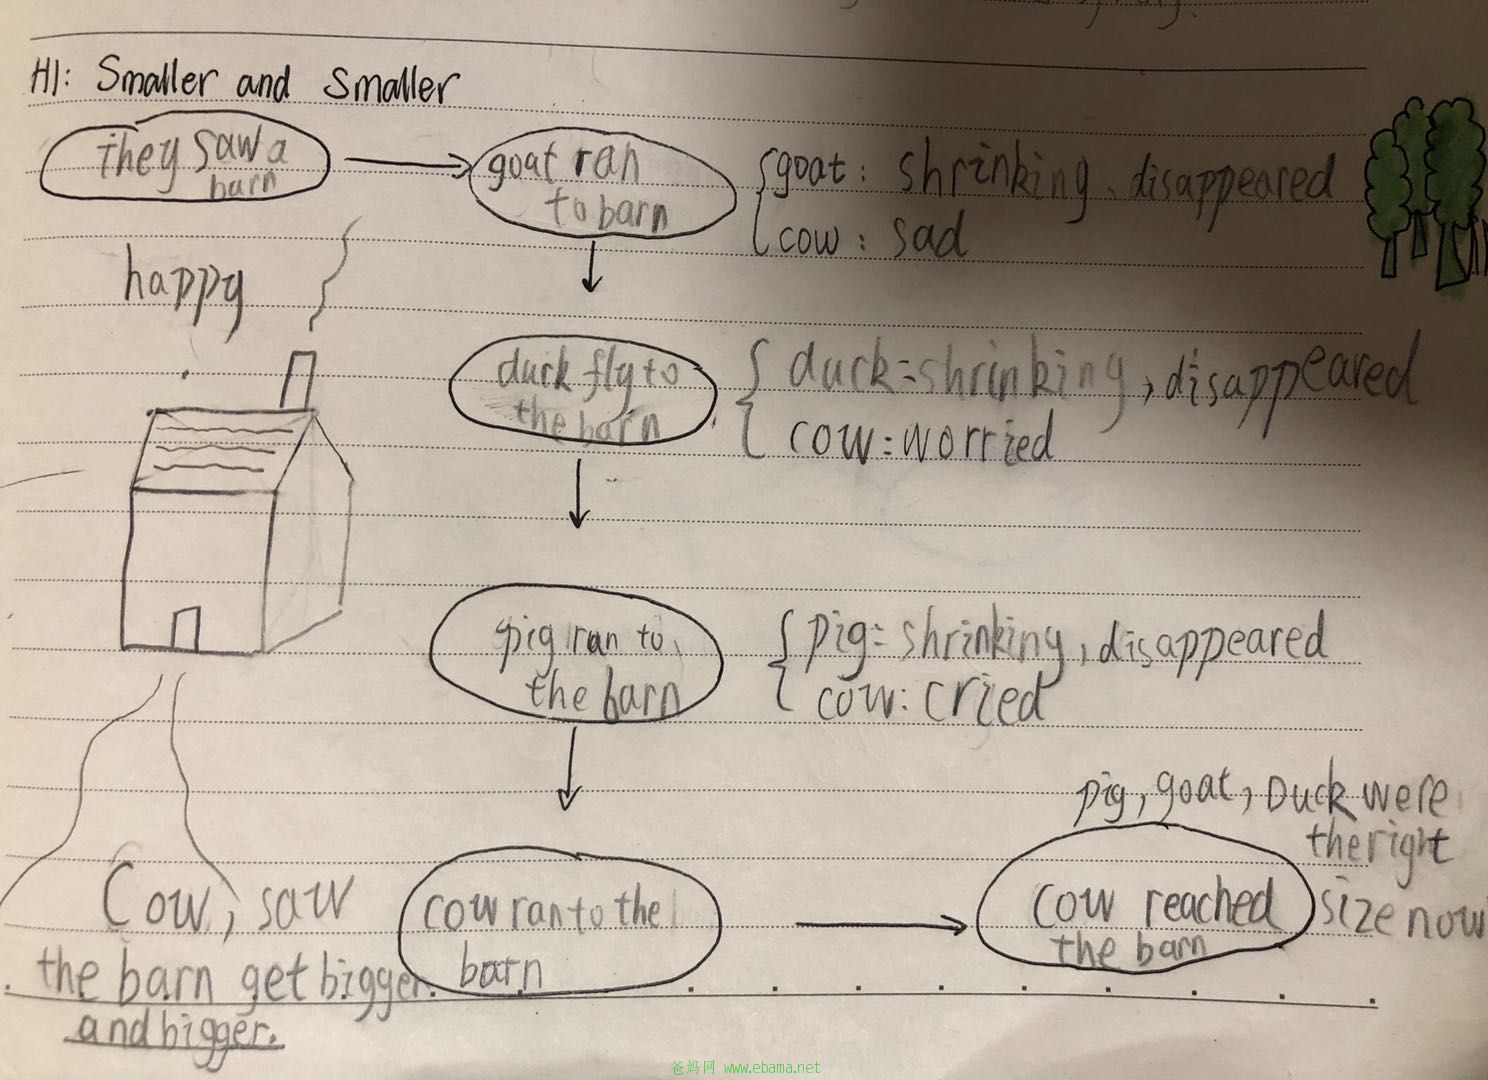 H1: Smaller and Smaller
they saw a
barn
goat ran
to barn
goat: shrinking、disappeared
cow: sad
happy
duck fly to
the barn
duck=shrinking, disappeared
cow=worried
pig ran to
the barn
pig=shrinking, disappeared
cow: cried
pig, goat, Duck were
the right
size now
Cow, saw
the barn get bigger.
and bigger.
cow ran to the
barn
cow reached
the barn
爸妈网 www.ebama.net